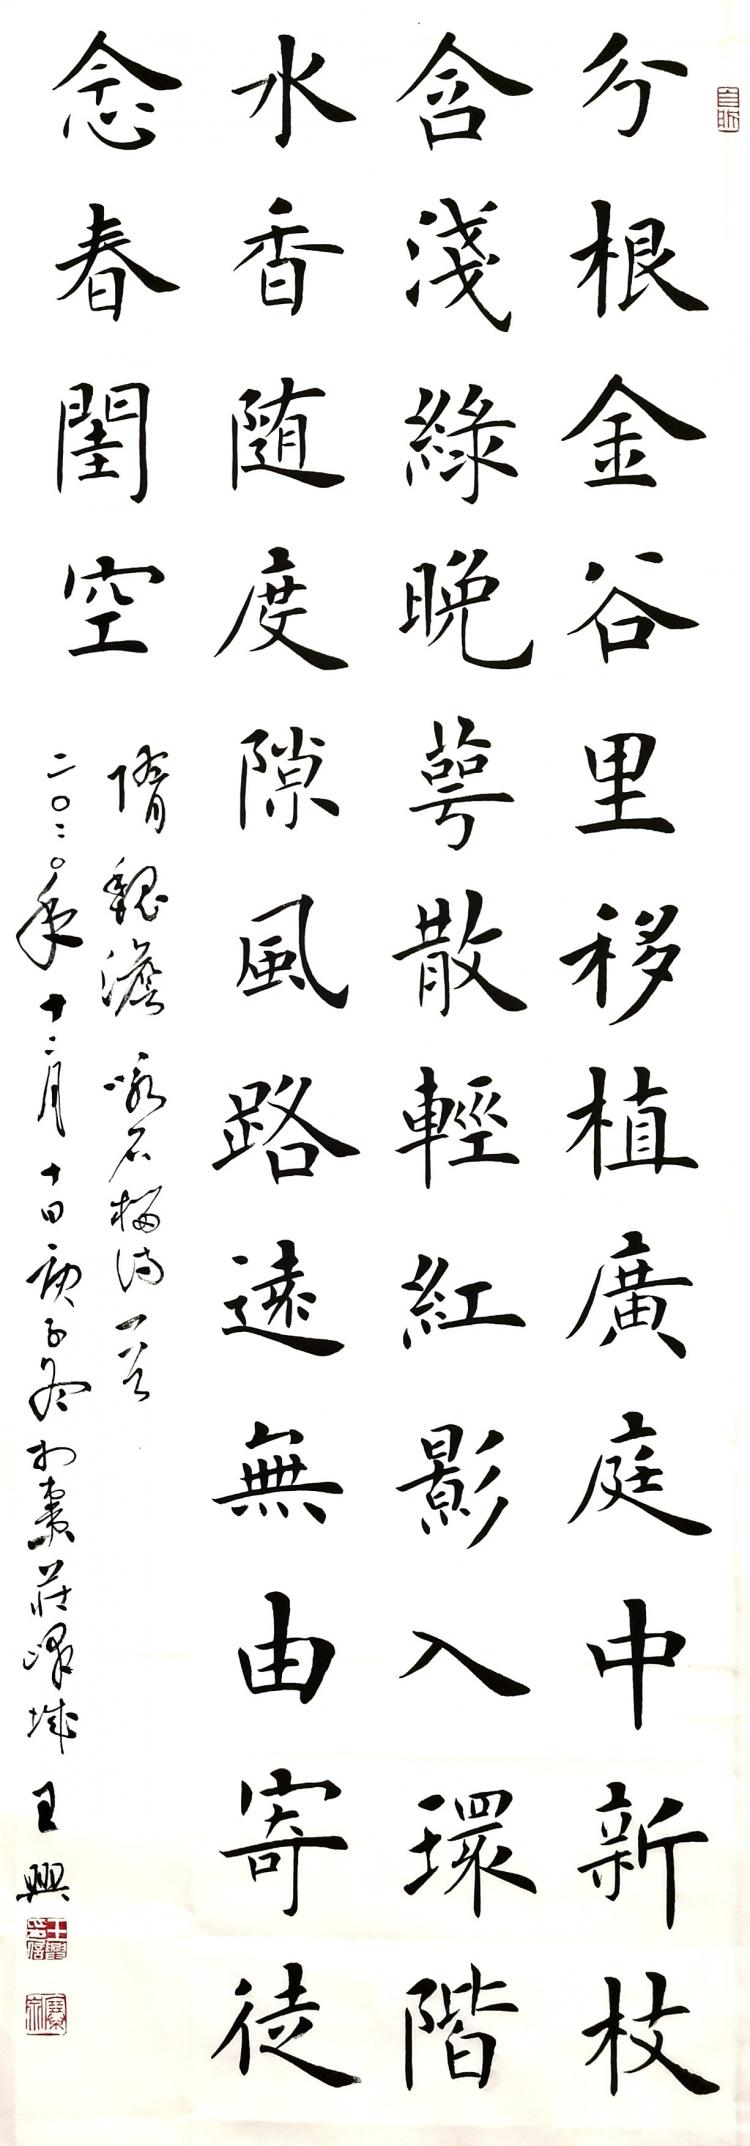 分根金谷里移植廣庭中新枝
含淺綠晚萼散輕紅影入環階
水香随度隙風路遠無由寄徒
念春閨空
隋魏澹咏石榴诗一首
二〇二〇年十二月十日庚子冬于枣莊峄城王興